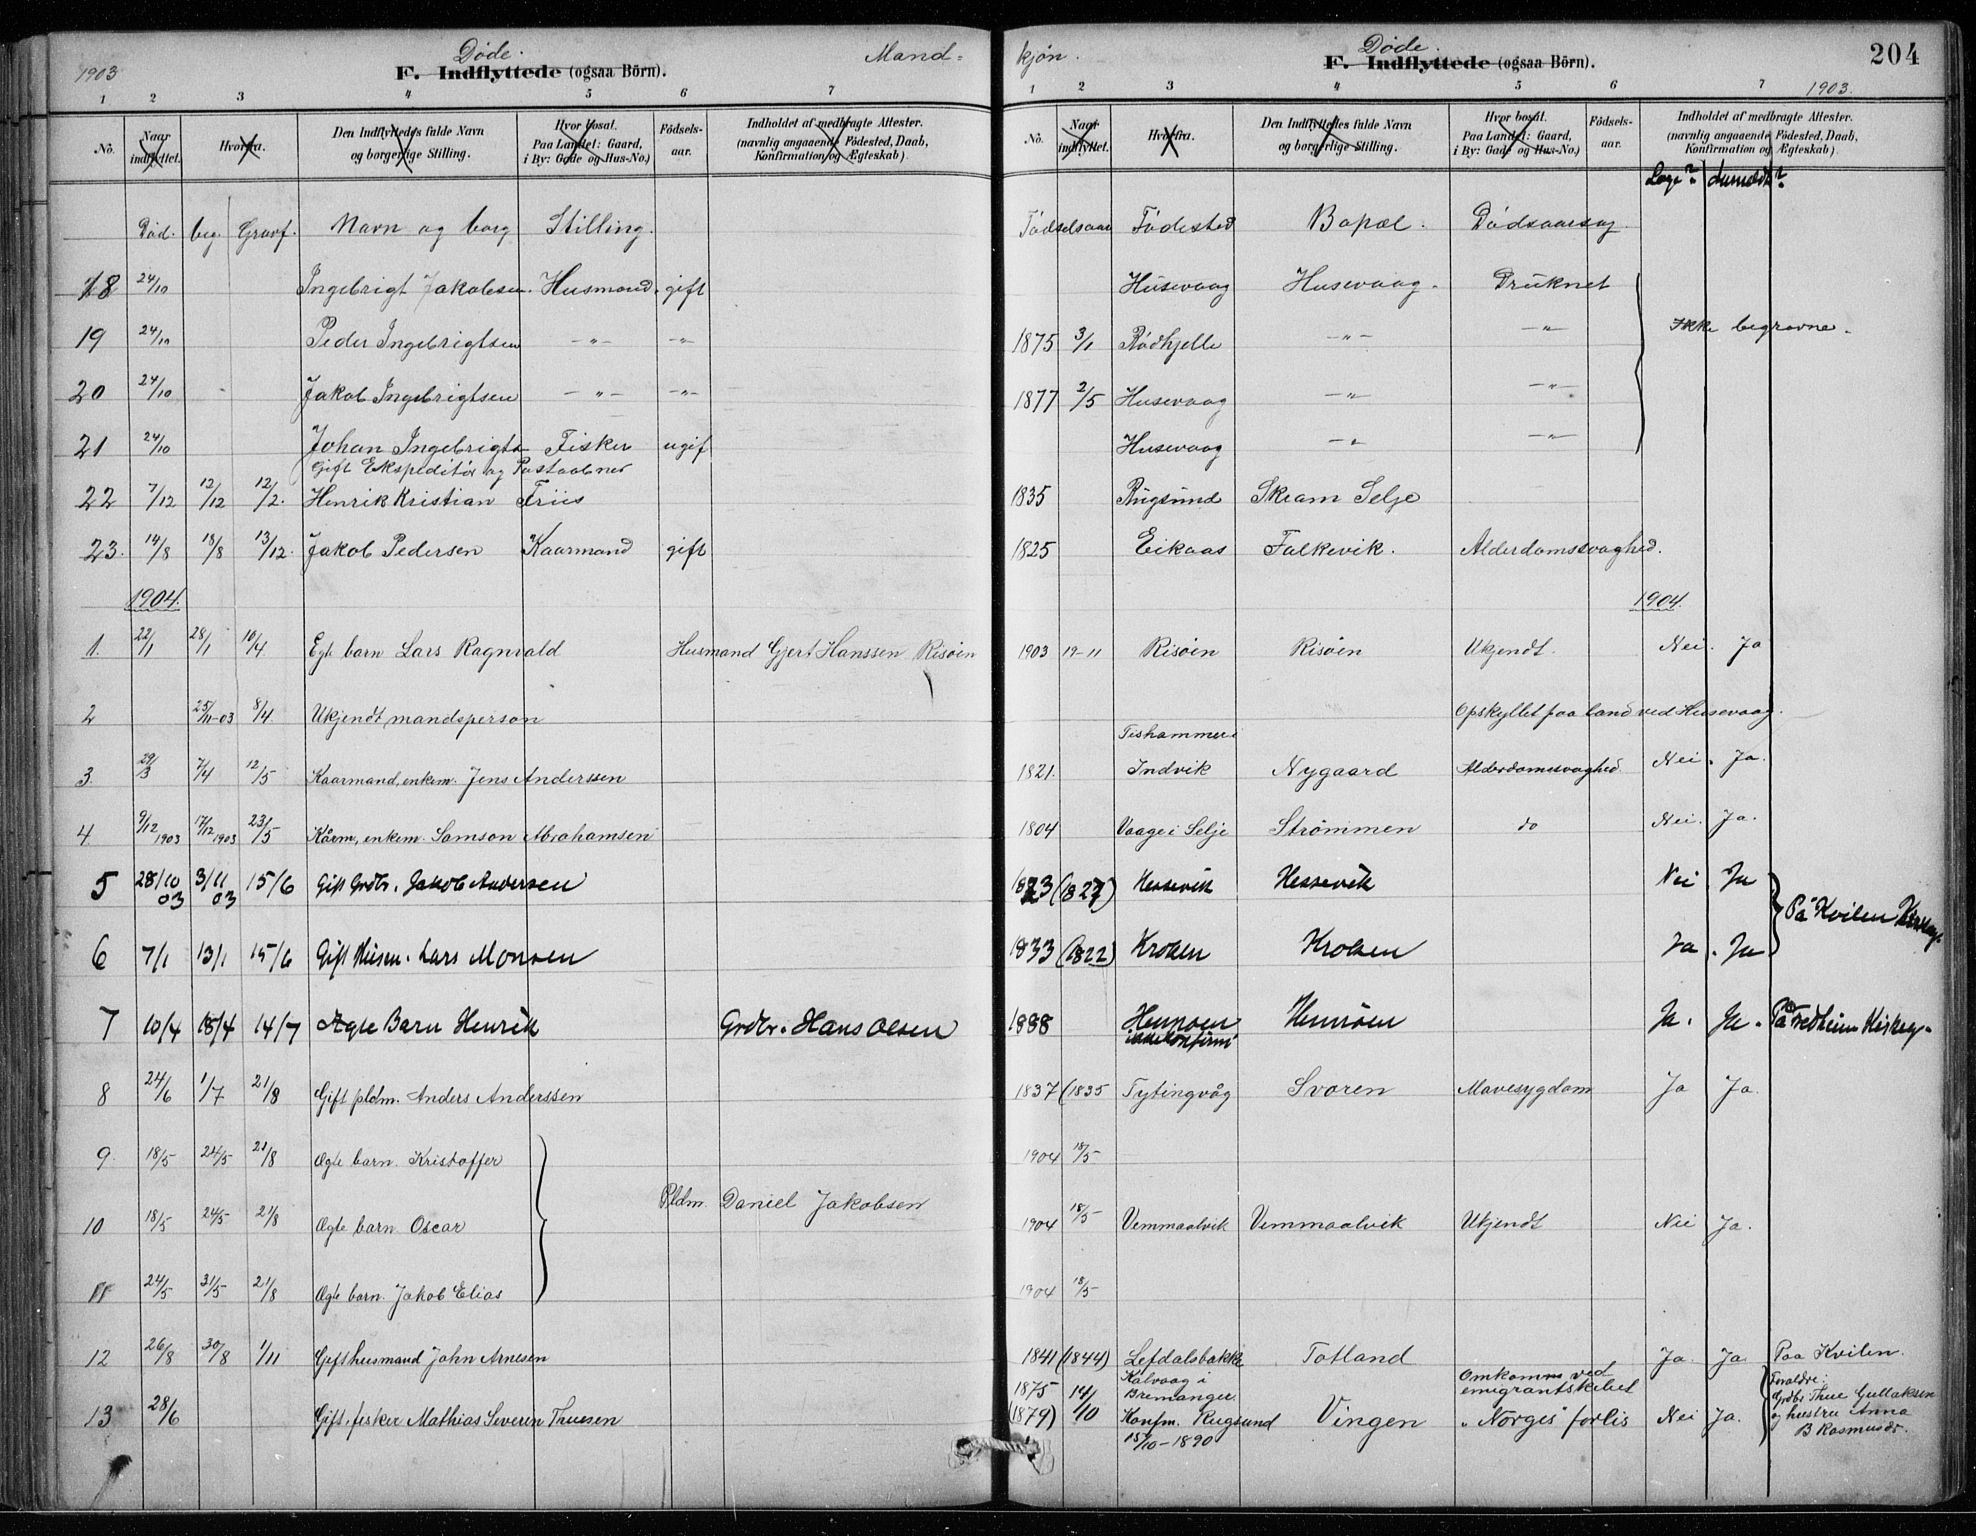 1903 Døde. Mand= kjøn. Døde. 204
F. Indflyttede (ogsaa Börn). F. Indflyttede (ogsaa Börn). 1903.
1 2 3 4 5 6 7 1 2 3 4 5 6 7
No. Naar indflyttet. Hvorfra. Den Indflyttedes fulde Navn og borgerlige Stilling. Hvor bosat. Paa Landet: Gaard, i By: Gade og Hus-No.) Fødsels-aar. Indholdet af medbragte Attester. (navnlig angaaende Födested, Daab, Konfirmation og Ægteskab).
No. Naar indflyttet. Hvorfra. Den Indflyttedes fulde Navn og borgerlige Stilling. Hvor bosat. Paa Landet: Gaard, i By: Gade og Hus-No.) Födsels-aar. Indholdet af medbragte Attester. (navnlig angaaende Födested, Daab, Konfirmation og Ægteskab).
Læge? Anmeldt?
Død. beg. Gravf. Navn og borg Stilling. Fødselsaar Fødested Bopæl. Dødsaarsag.
18 24/10 Ingebrigt Jakobsen. Husmand. gift Husevaag Husevaag. Druknet
19 24/10 Peder Ingebrigtsen -"- -"- 1875 3/1 Rødhjelle -"- -"- Ikke begravne.
20 24/10 Jakob Ingebrigtsen -"- -"- 1877 2/5 Husevaag -"- -"-
21 24/10 Johan Ingebrigts Fisker ugif Husevaag -"- -"-
Gift Ekspeditør og Postaabner
22 7/12 12/12 12/2. Henrik Kristian Friis 1835 Rugsund Skram Selje
23. 14/8 18/8 13/12. Jakob Pedersen Kaarmand gift 1825 Eikaas Falkevik. Alderdomssvaghed.
1904. 1904.
1. 22/1 28/1 10/4 Egte barn Lars Ragnvald Husmand Gjert Hanssen Risøen 1903 19-11 Risøen Risøen Ukjendt. Nei. Ja
2 25/11-03 8/4 Ukjendt mandsperson Opskyllet paa land ved Husevaag.
3. 29/3 7/4 12/5 Kaarmand, enkem. Jens Anderssen 1821. Indvik Nygaard Alderdomssvaghed. Nei. Ja.
4. 9/12 1903 17/12 1903 23/5 Kårm, enkem. Samson Abrahamsen 1804 Vaage i Selje Strømmen do Nei. Ja.
5 28/10 03 3/11 03 15/6 Gift Grdbr. Jakob Andersen 1823 (1827) Hessevik Hessevik Nei Ja
På Kvilen
6 7/1 13/1 15/6 Gift Husm. Lars Monsen 1833 (1822) Kroken Kroken Ja. Ja
7 10/4 18/4 14/7 Ægte Barn Henrik Grdbr. Hans Olsen 1888 Hennøen Hennøen Ja. Ja. På Fredheim Kirkeg.
ikke konfirm
8 24/6 1/7 21/8 Gift pldm. Anders Anderssen 1837 (1835 Tytingvåg Svoren Mavesygdom Ja Ja
9. 18/5 24/5 21/8 Ægte barn. Kristoffer 1904 18/5
Pldm. Daniel Jakobsen
10 18/5 24/5 21/8 Ægte barn Oscar 1904 18/5 Vemmaalvik Vemmaalvik Ukjendt Nei Ja.
11 24/5 31/5 21/8 Ægte barn. Jakob Elias 1904 18/5
12 26/8 30/8 1/11 Gift husmand John Arnesen 1841 (1844) Lefdalsbakke Totland Ja. Ja. Paa Kvilen.
13 28/6 Gift. fisker Mathias Severin Thuesen 1875 (1879) 14/10 Kalvaag i Bremanger Konfm. Rugsund 15/10-1890 Vingen Omkomm ved emigrantskibet "Norges" forlis Nei Ja. Forældre: Grdbr Thue Gullaksen og hustru Anna B Rasmusdr.